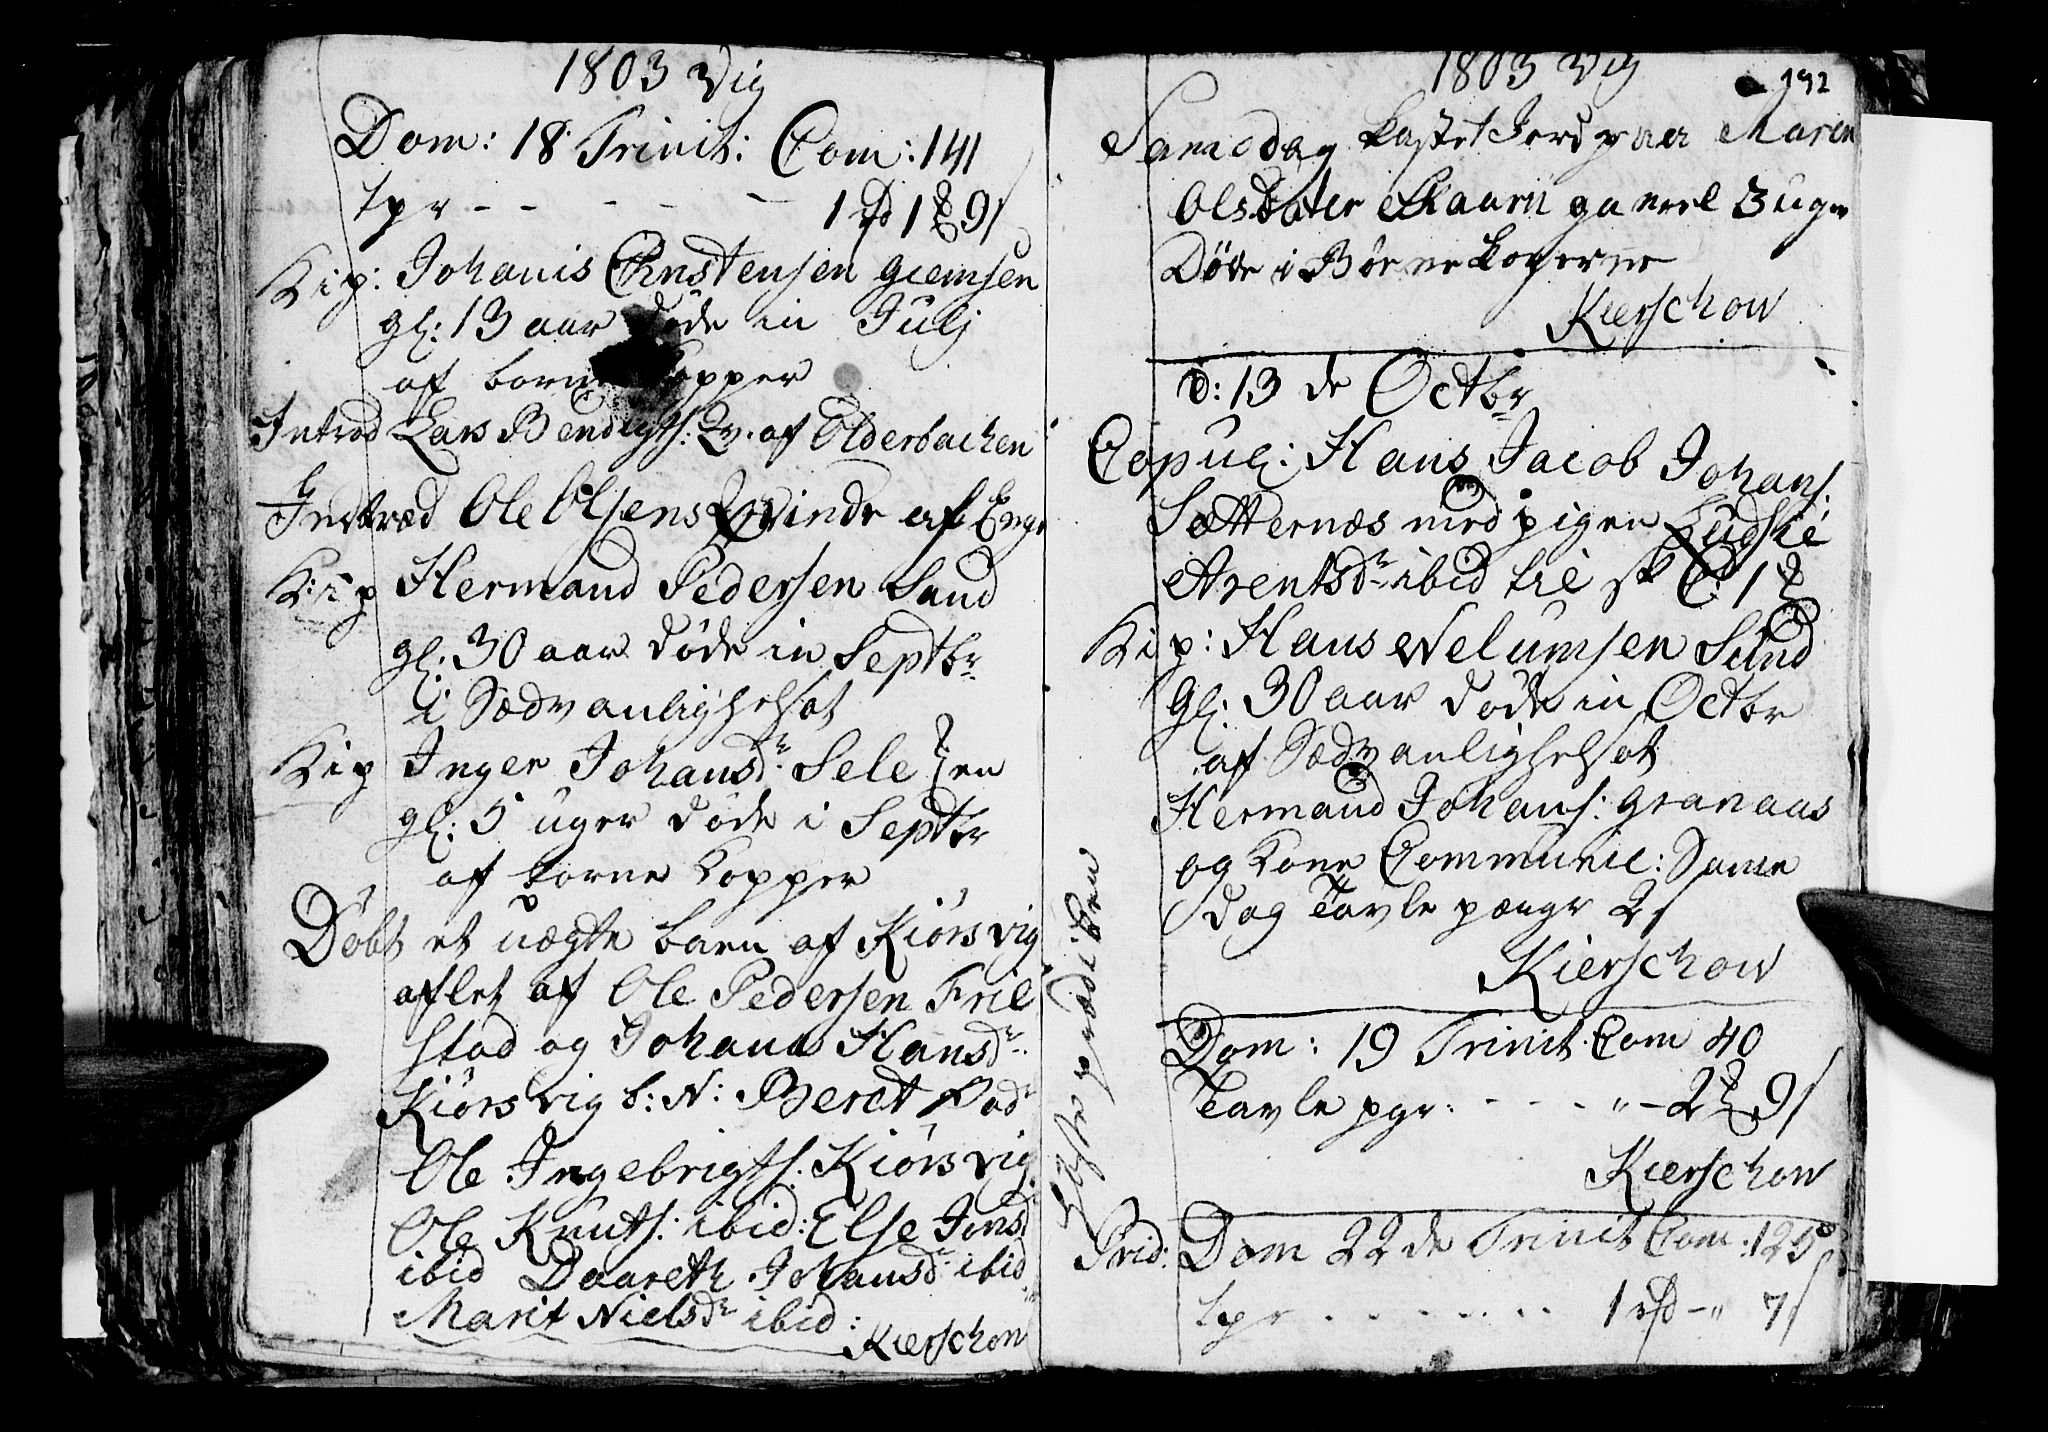 1803 Vig
Dom: 18 Trinit: Com: 141
tpr - - - - - 1 rd 1 9 s
Kip: Johanis Christensen Giemsen
gl: 13 aar døde in Julj
af borne Kopper
Introd Lars Bendigts: Qv. af Olderbachen
Introd Ole Olsens Qvinde af
Kip Hermand Pedersen Sund
gl: 30 aar døde in Septbr
i Sædvanlighelsot
Kip Inger Johansdr Sele en
gl: 5 uger døde i Septbr
af borne Kopper
Døbt et uægte barn af Kiørsvig
aflet af Ole Pedersen Friel
stad og Johana Hansdr
Kiørsvig b: N: Beret Fad
Ole Ingebrigts. Kiørsvig
Ole Knuts: ibid: Else Jonsd
ibid Daareth Johansdr ibid
Marit Nielsdr ibid:
Kierschow
1803 Vig 192
Samedag kastet Jord paa Maren
Olsdater Skaarii gamel 3 uger
Døde i Børnekopperne
Kierschow
d: 13 de Octbr
Copul: Hans Jacob Johans:
Sætternæs med pigen
Arentsdr ibid til sk 1
Kip: Hans Velumsen Sund
gl: 30 aar døde in Octbr
af Sædvanlighelsot
Hermand Johans: Granaas
og Kone Communic: Same
dag Tavle pænge 2 s
Kierschow
Dom: 19 Trinit. Com 40
Tavle pgr: - - - - 2 9 s
Kierschow
Prid: Dom 22 de Trinit Com: 125
tpr - - - - - 1 rd - " 7 s